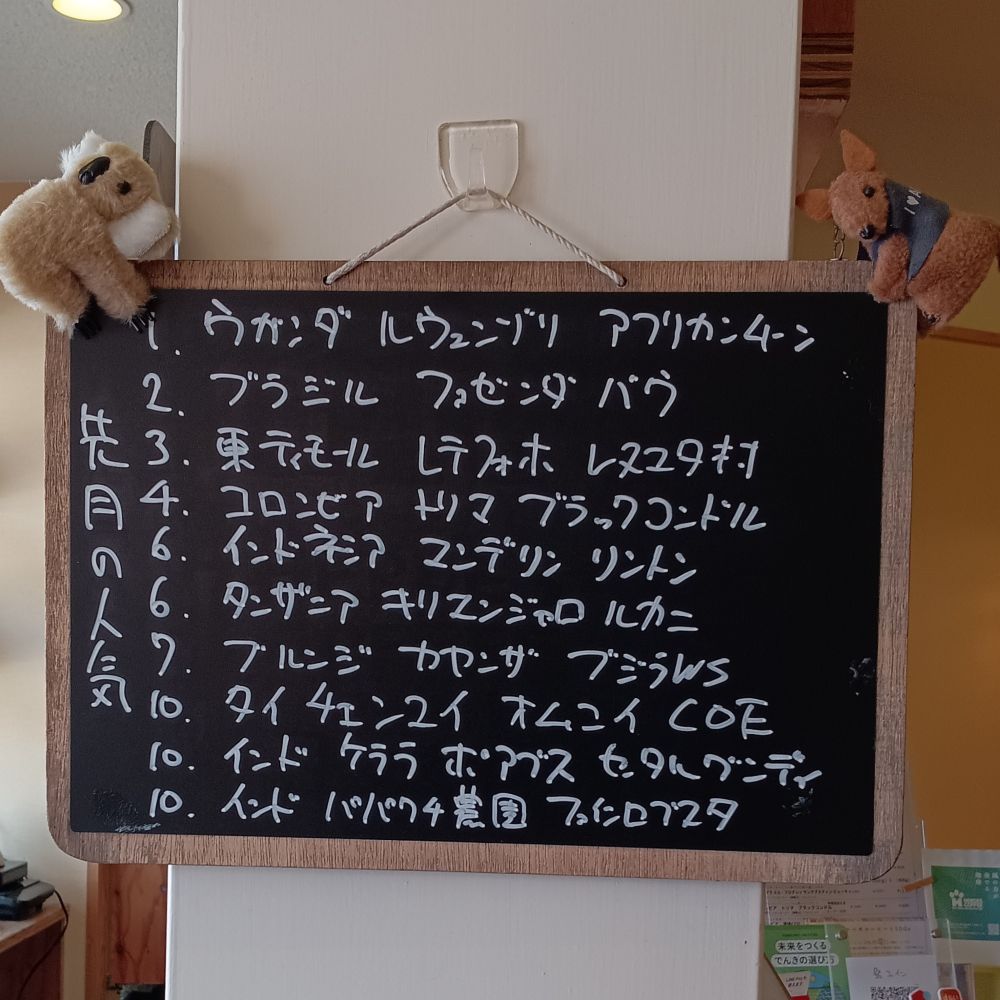 1. ウガンダ ルウェンゾリ アフリカンムーン
2. ブラジル ファゼンダ バウ
3. 東ティモール レテフォホ レヌユタ村
4. コロンビア トリマ ブラックコンドル
6. インドネシア マンデリン リントン
6. タンザニア キリマンジャロ ルカニ
7. ブルンジ カヤンザ ブジラWS
10. タイ チェンユイ オムコイ COE
10. インド ケララ ポアブス セタルグンディ
10. インド ババウチ農園 ファインロブスタ
先月の人気
I ♥ A
未来をつくる
でんきの選び方